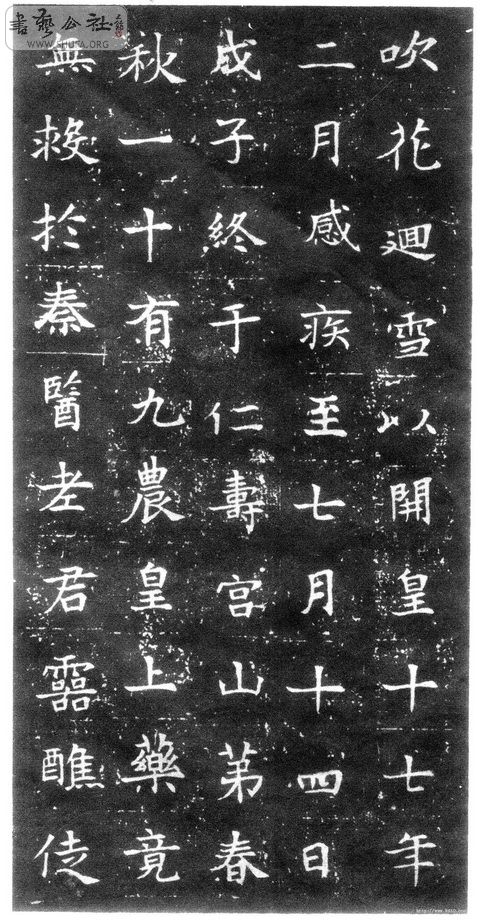 書藝公社
WWW.SHUFA.ORG
吹花迴雪以開皇十七年
二月感疾至七月十四日
戊子終于仁壽宮山第春
秋一十有九農皇上藥竟
無救於秦醫老君靈醮徒